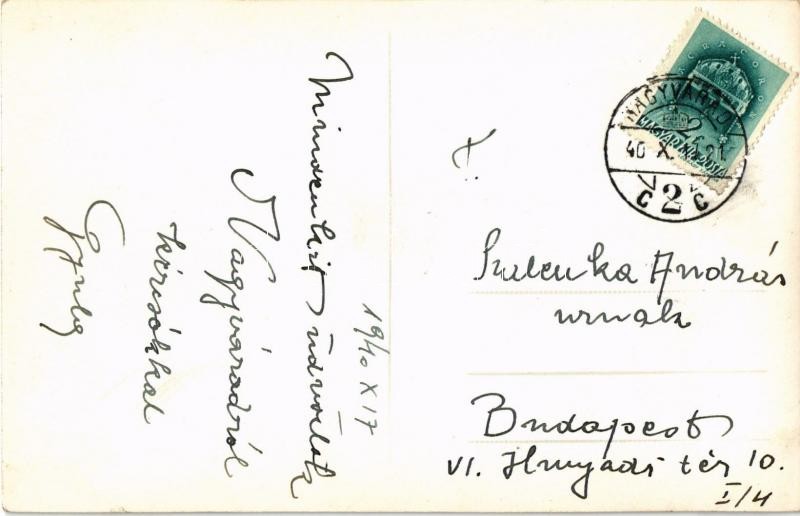 1940 X 17
Mindenkit üdvözlök
Nagyváradról
kézcsókkal
Gyula
T.
András
urnak
Budapest
VI. Hunyadi tér 10.
I/4
SACRA CORONA
2
MAGYAR KIR. POSTA
NAGYVÁRAD
40 X.
C 2 C